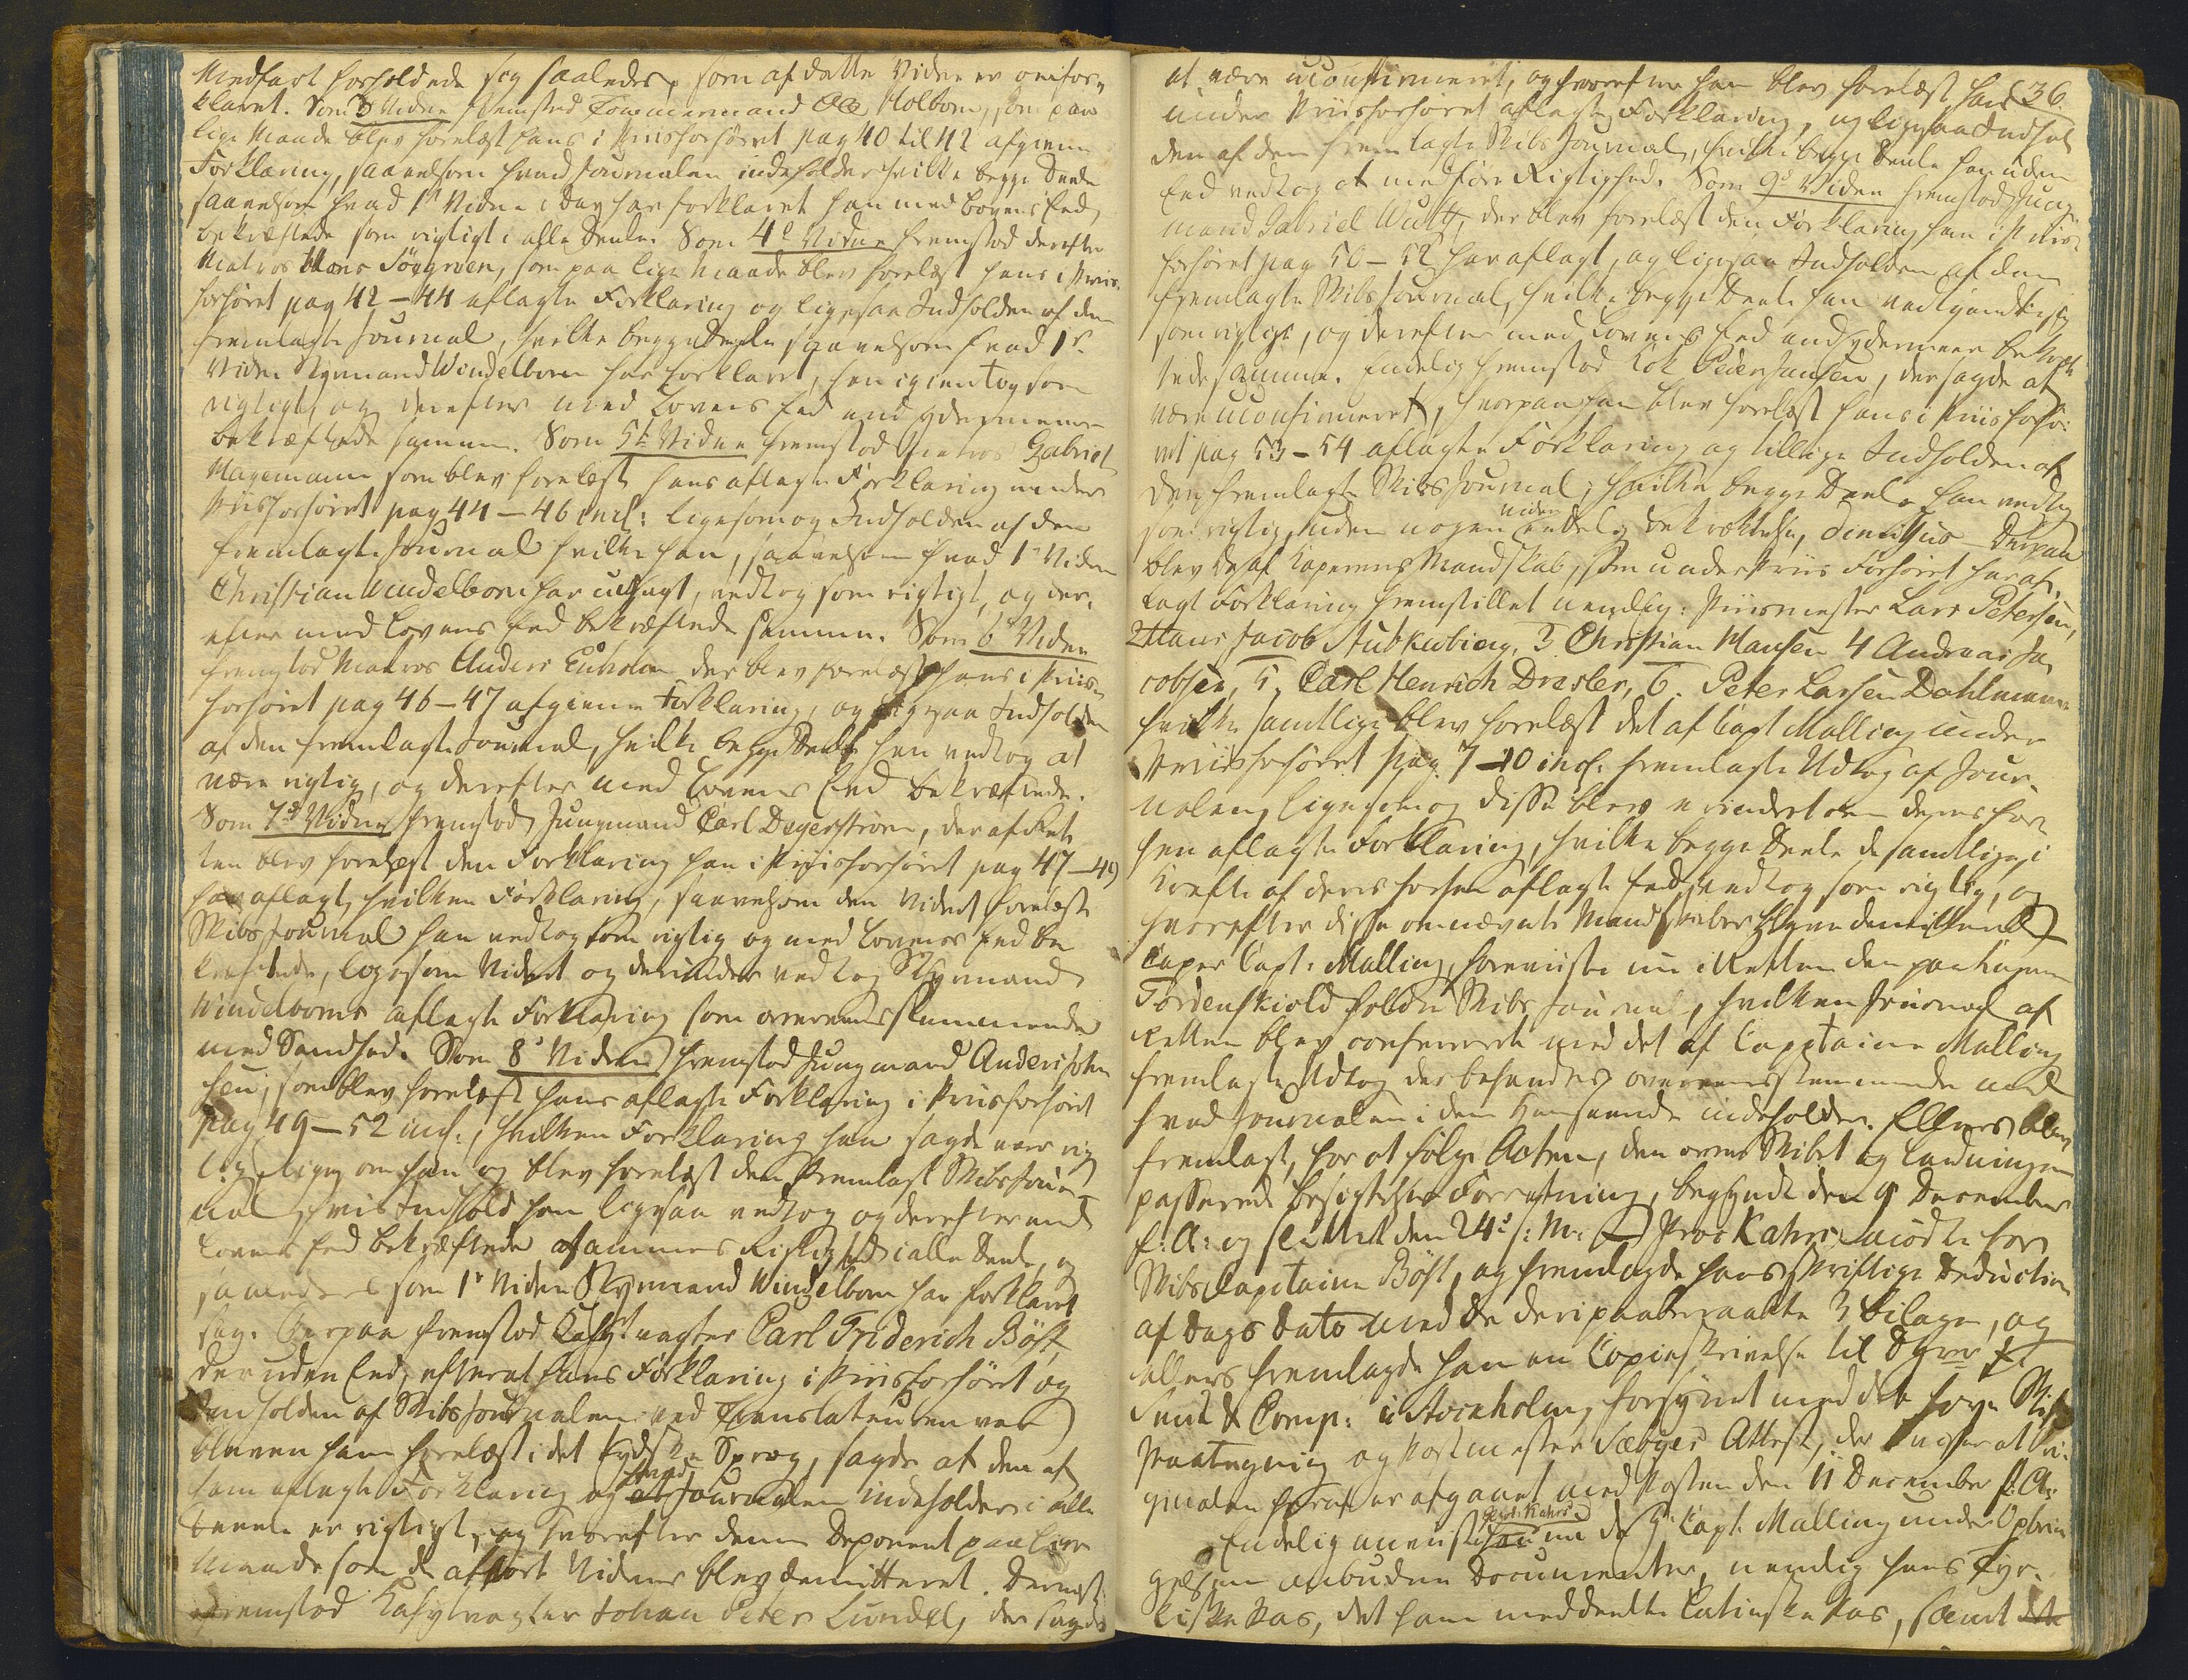 Medfart forholdede sig saaledes, som af dette Vidne er omfor-
klaret. Som 3 Vidne fremstod Tømmermand Ole Holbom, som paa
lige Maade blev forelæst hans i Priisforhøret pag 40 til 42 afgivne
Forklaring, saavelsom hvad Journalen indeholder hvilke begge Deele
saavelsom hvad 1ste Vidne i Dag har forklaret han med Lovens Eed
bekræftede som rigtigt i alle Deele. Som 4de Vidne fremstod derefter
Matros Hans Söggreen, som paa lige Maade blev forelæst hans i Priis-
forhöret pag 42 - 44 aflagte Forklaring og ligesaa Indholden af den
fremlagte Journal, hvilke begge Deele saavelsom hvad 1ste
Vidne Styrmand Windelborn har forklaret, han igientog som
rigtigt, og derefter med Lovens Eed end ydermeere
bekræftede samme. Som 5te Vidne fremstod Matros Gabriel
Hagemann som blev forelæst hans aflagte Forklaring under
Priisforhöret pag 44 - 46 incl: ligesom og Indholden af den
fremlagte Journal hvilke han, saavelsom hvad 1ste Vidne
Christian Windelborn har udsagt, vedtog som rigtigt, og der-
efter med Lovens Eed bekræftede samme. Som 6te Vidne
fremstod Matros Anders Euholm der blev forelæst hans i Priis-
forhöret pag 46 - 47 afgivne Forklaring, og ligesaa Indholden
af den fremlagte Journal, hvilke begge Deele han vedtog at
være rigtig, og derefter med Lovens Eed bekræftede.
Som 7de Vidne fremstod Jungmand Carl Degerstrøm, der af Ret-
ten blev forelæst den Forklaring han i Priisforhöret pag 47 - 49
har aflagt, hvilken Forklaring, saavelsom den Vidnet forelæste
Skibs Journal han vedtog som rigtig og med Lovens Eed be-
kræftede, ligesom Vidnet og derunder vedtog Styrmand
Windelborns aflagte Forklaring som overeensstemmende
med Sandhed. Som 8de Vidne fremstod Jungmand Anders John-
sen, som blev forelæst hans aflagte Forklaring i Priisforhöret
pag 49 - 52 incl:, hvilken Forklaring han sagde var rig-
tig, ligesom han og blev forelæst den fremlagte Skibs Jour-
nal, hvis Indhold han ligesaa vedtog og derefter med
Lovens Eed bekræftede sammes Rigtighed i alle Deele, og
saaledes som 1ste Vidne Styrmand Windelborn har forklaret
sig. Derpaa fremstod Kahytvagter Carl Friderich Böst,
der uden Eed, efter at hans Forklaring i Priisforhöret og
Indholden af Skibs Journalen ved Translateuren var
bleven ham forelæst i det tydske Sprog, sagde at den af
ham aflagte Forklaring og hvad Journalen indeholder i alle
Deele er rigtigt, og hvorefter denne Deponent paa lige
Maade som de afhørte Vidner blev demitteret. Dernæst
fremstod Kahytvagter Johan Peter Lundel, der sagde
36.
at være uconfirmeret, og hvorefter han blev forelæst hans
under Priisforhöret aflagte Forklaring, og ligesaa Indhol-
den af den fremlagte Skibs Journal, hvilke begge Deele han uden
Eed vedtog at medføre Rigtighed. Som 9de Viden fremstod Jung-
mand Gabriel Wulff, der blev forelæst den Forklaring han i Priis-
forhöret pag 50 - 52 har aflagt, og ligesaa Indholden af den
fremlagte Skibs Journal, hvilke begge Deele han vedkjendte sig
som rigtige, og derefter med Lovens Eed end ydermeere bekræf-
tede samme. Endelig fremstod Kok Peder Jansen, der sagde at
være uconfirmeret, hvorpaa han blev forelæst hans i Priisforhö-
ret pag 53 - 54 aflagte Forklaring og tillige Indholden af
den fremlagte Skibs Journal, hvilke begge Deele han vedtog
som rigtig, uden nogen viden eedelig Bekræftelse, dimittus Derpaa
blev de af Kaperens Mandskab, som under Priis Forhöret har af-
lagt Forklaring fremstillet nemlig: Priismester Lars Petersen,
2 Hans Jacob Stubkebierg, 3 Christian Hansen 4 Andreas Ja-
cobsen, 5, Carl Henrich Dresler, 6. Peter Larsen Dahlmann
hvilke samtlige blev forelæst det af Capt Malling under
Priisforhöret Pag. 7 - 10 incl. fremlagte Udtog af Jour-
nalen, ligesom og disse blev erindret om deres for-
hen aflagte Forklaring, hvilke begge Deele de samtlige, i
Kræft af deres forhen aflagte Eed, vedtog som rigtig, og
hvorefter disse omnævnte Mandskaber bleve demitterede
Caper Capt: Malling, foreviiste nu i Retten den paa Kaperen
Tordenskiold holdte Skibs Journal, hvilken Journal af
Retten blev confereret med det af Capitaine Malling
fremlagte Udtog der befandtes overeensstemmende med
hvad Journalen i den Henseende indeholder. Ellers blev
fremlagt, for at følge Acten, den over Skibet og Ladningen
passerede Besigtelses Forretning, begyndt den 9 December
f: A: og sluttet den 24de s: M: Proc Kahrs mødte for
Skibs Capitaine Böst, og fremlagde hans skriftlige Deduction
af Dags Dato med de deri paaberaabte 3 Bilage, og
ellers fremlagde han en Copieskrivelse til DHrr
Smit & Comp: i Stockholm, forsynet med det
Paategning og Postmester Sæbyes Attest, der viser at Ori-
ginalen heraf er afgaaet med Posten den 11 December f: A:
Endelig anviste Proc: Kahrs nu de Hr Capt. Malling under Opbrin-
gelsen anbudne Documenter, nemlig hans Tyr-
kiske Pas, det ham meddeelte Latinske Pas, samt